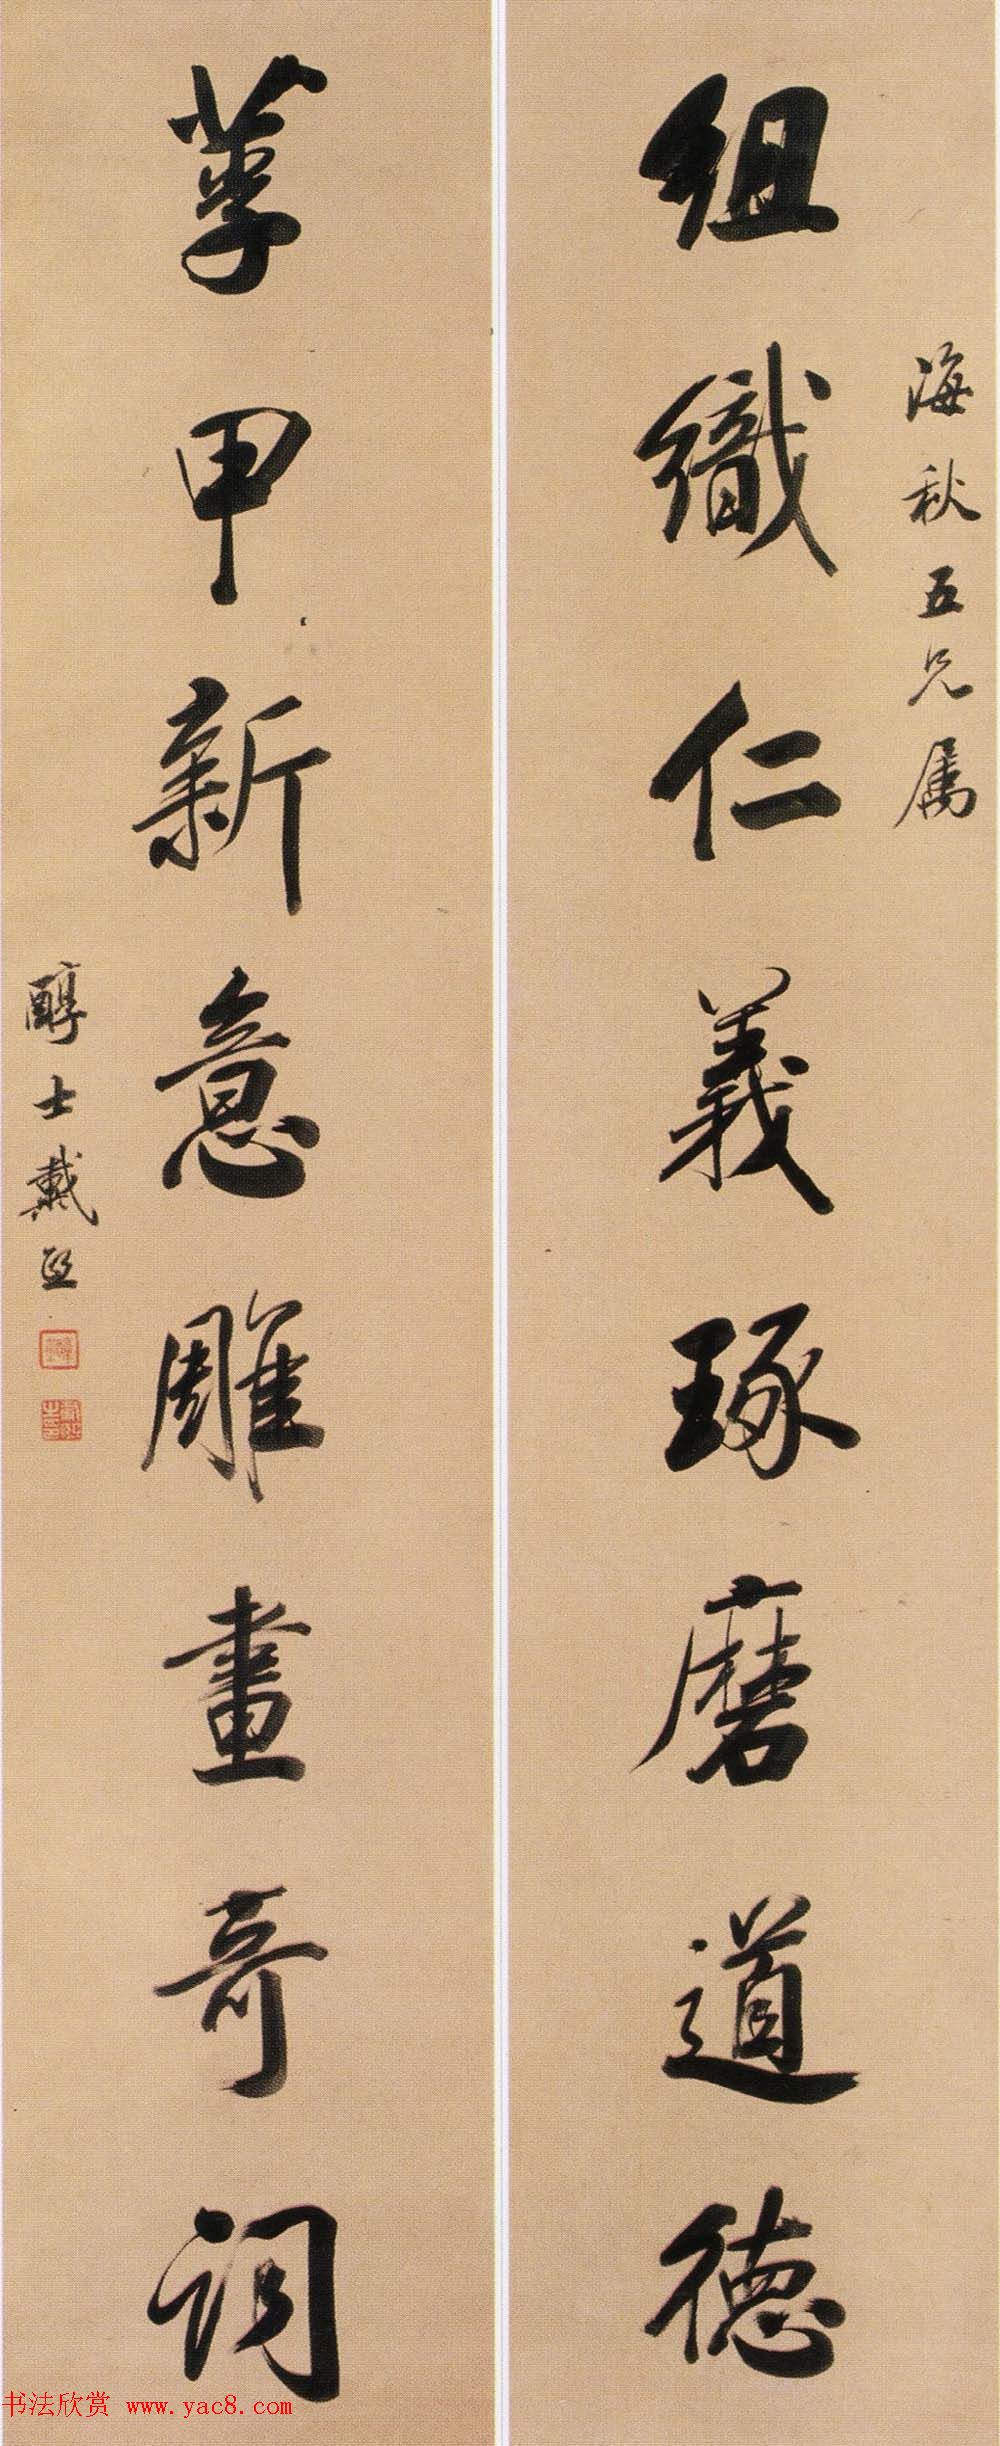 海秋五兄属
組織仁義琢磨道德
莩甲新意雕畫奇詞
醇士戴熙
书法欣赏 www.yac8.com